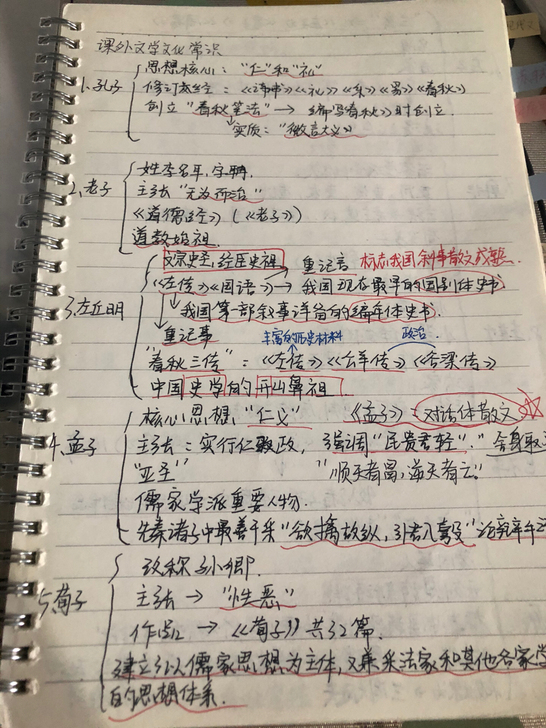 课外文学文化常识
思想核心："仁"和"礼"
1.孔子 修订六经：《诗》《书》《礼》《乐》《易》《春秋》
创立"春秋笔法"→编写《春秋》时创立.
实质："微言大义"
姓李名耳,字聃.
2.老子 主张"无为而治"
《道德经》(《老子》)
道教始祖.
文宗史圣,经臣史祖 重记言 标志我国叙事散文成熟.
《左传》《国语》→我国现存最早的国别体史书
3.左丘明 我国第一部叙事详备的编年体史书.
重记事 丰富的历史材料 政治.
"春秋三传"：《左传》《公羊传》《谷梁传》
中国史学的开山鼻祖.
核心思想,"仁义" 《孟子》：对话体散文
4.孟子 主张：实行仁政,强调"民贵君轻"."舍身取
"亚圣" "顺天者昌,逆天者亡"
儒家学派重要人物.
先秦诸子中最善于采"欲擒故纵,引君入彀"
又称孙卿.
5.荀子 主张→"性恶"
作品→《荀子》共32篇.
建立以儒家思想为主体,又兼采法家和其他各家学
的思想体系.